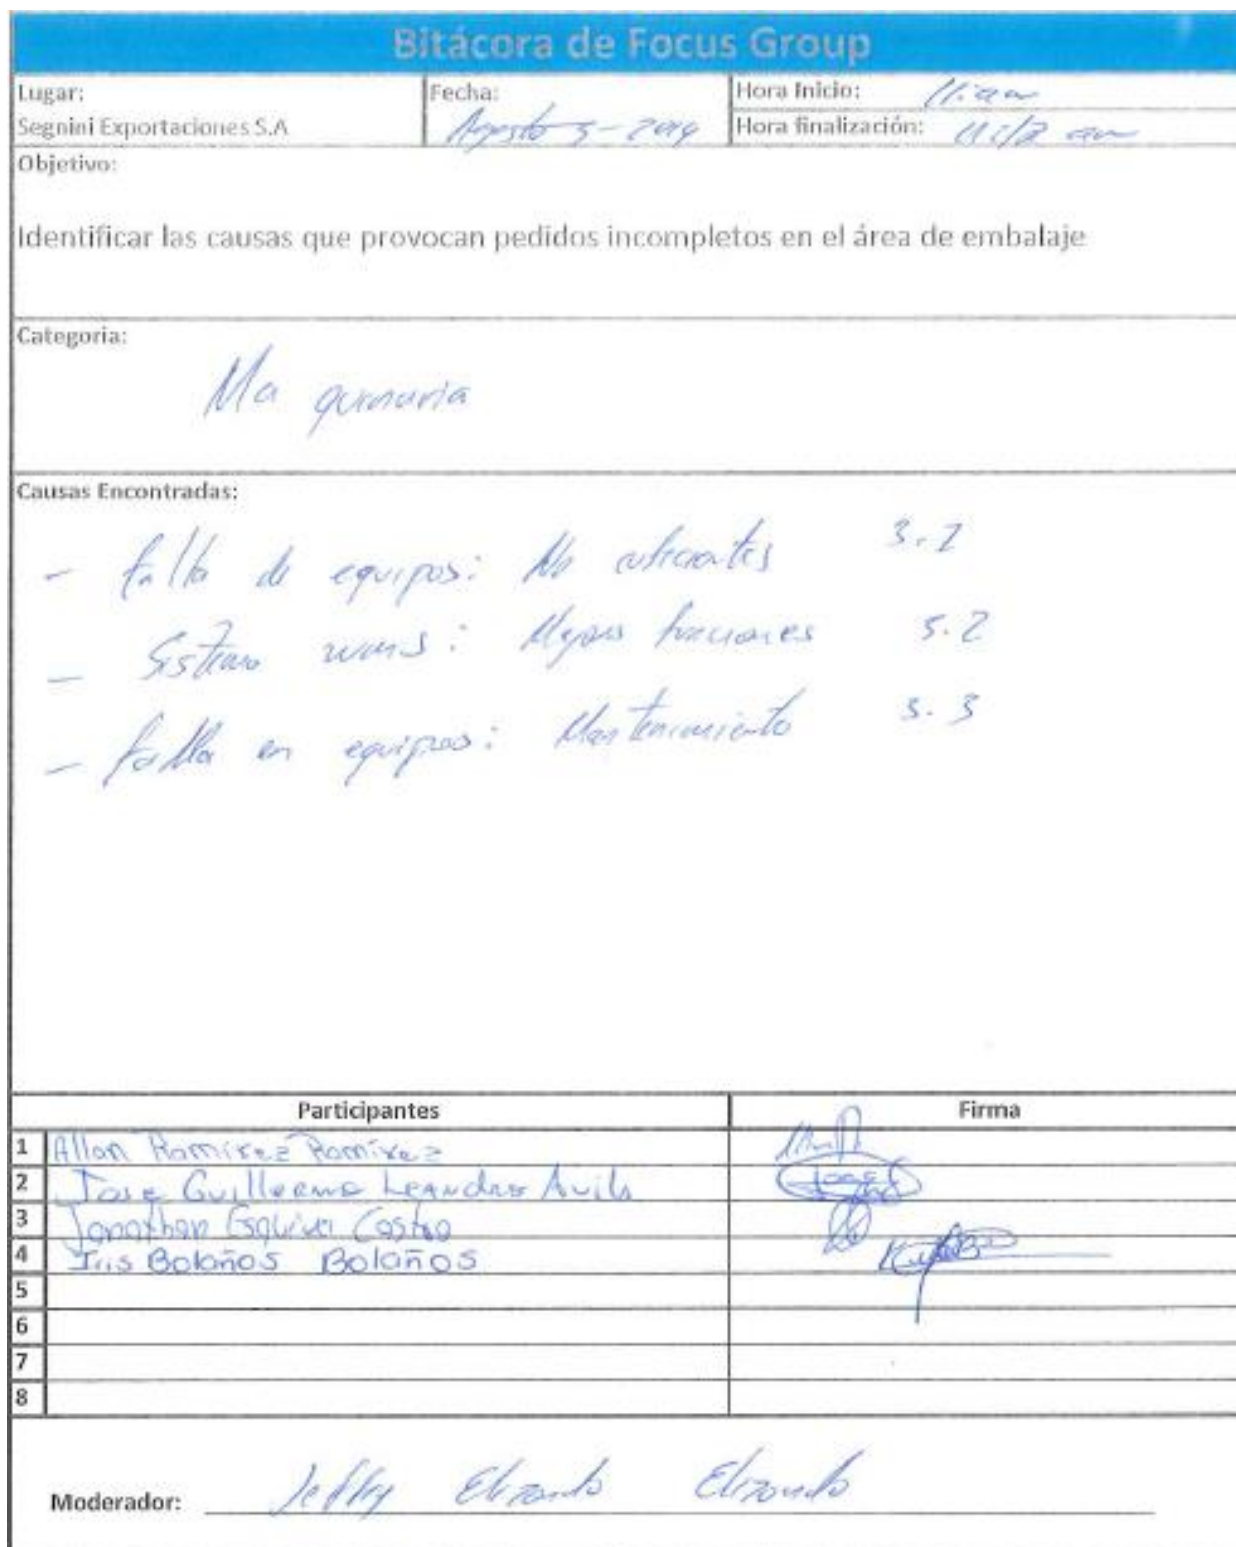 Bitácora de Focus Group
Lugar:
Segnini Exportaciones S.A
Fecha:
Agosto 5-2019
Hora Inicio: 11:am
Hora finalización: am
Objetivo:
Identificar las causas que provocan pedidos incompletos en el área de embalaje
Categoria:
Maquinaria
Causas Encontradas:
- falta de equipos: No suficientes 3.1
- Sistema wms: Mejores funciones 3.2
- falla en equipos: Mantenimiento 3.3
Participantes Firma
1 Allan Ramirez Ramirez
2 Jose Guillermo Leandro Avila
3 Jonathan Esquivel Castro
4 Iris Bolaños Bolaños
5
6
7
8
Moderador: Jeffry Elizondo Elizondo